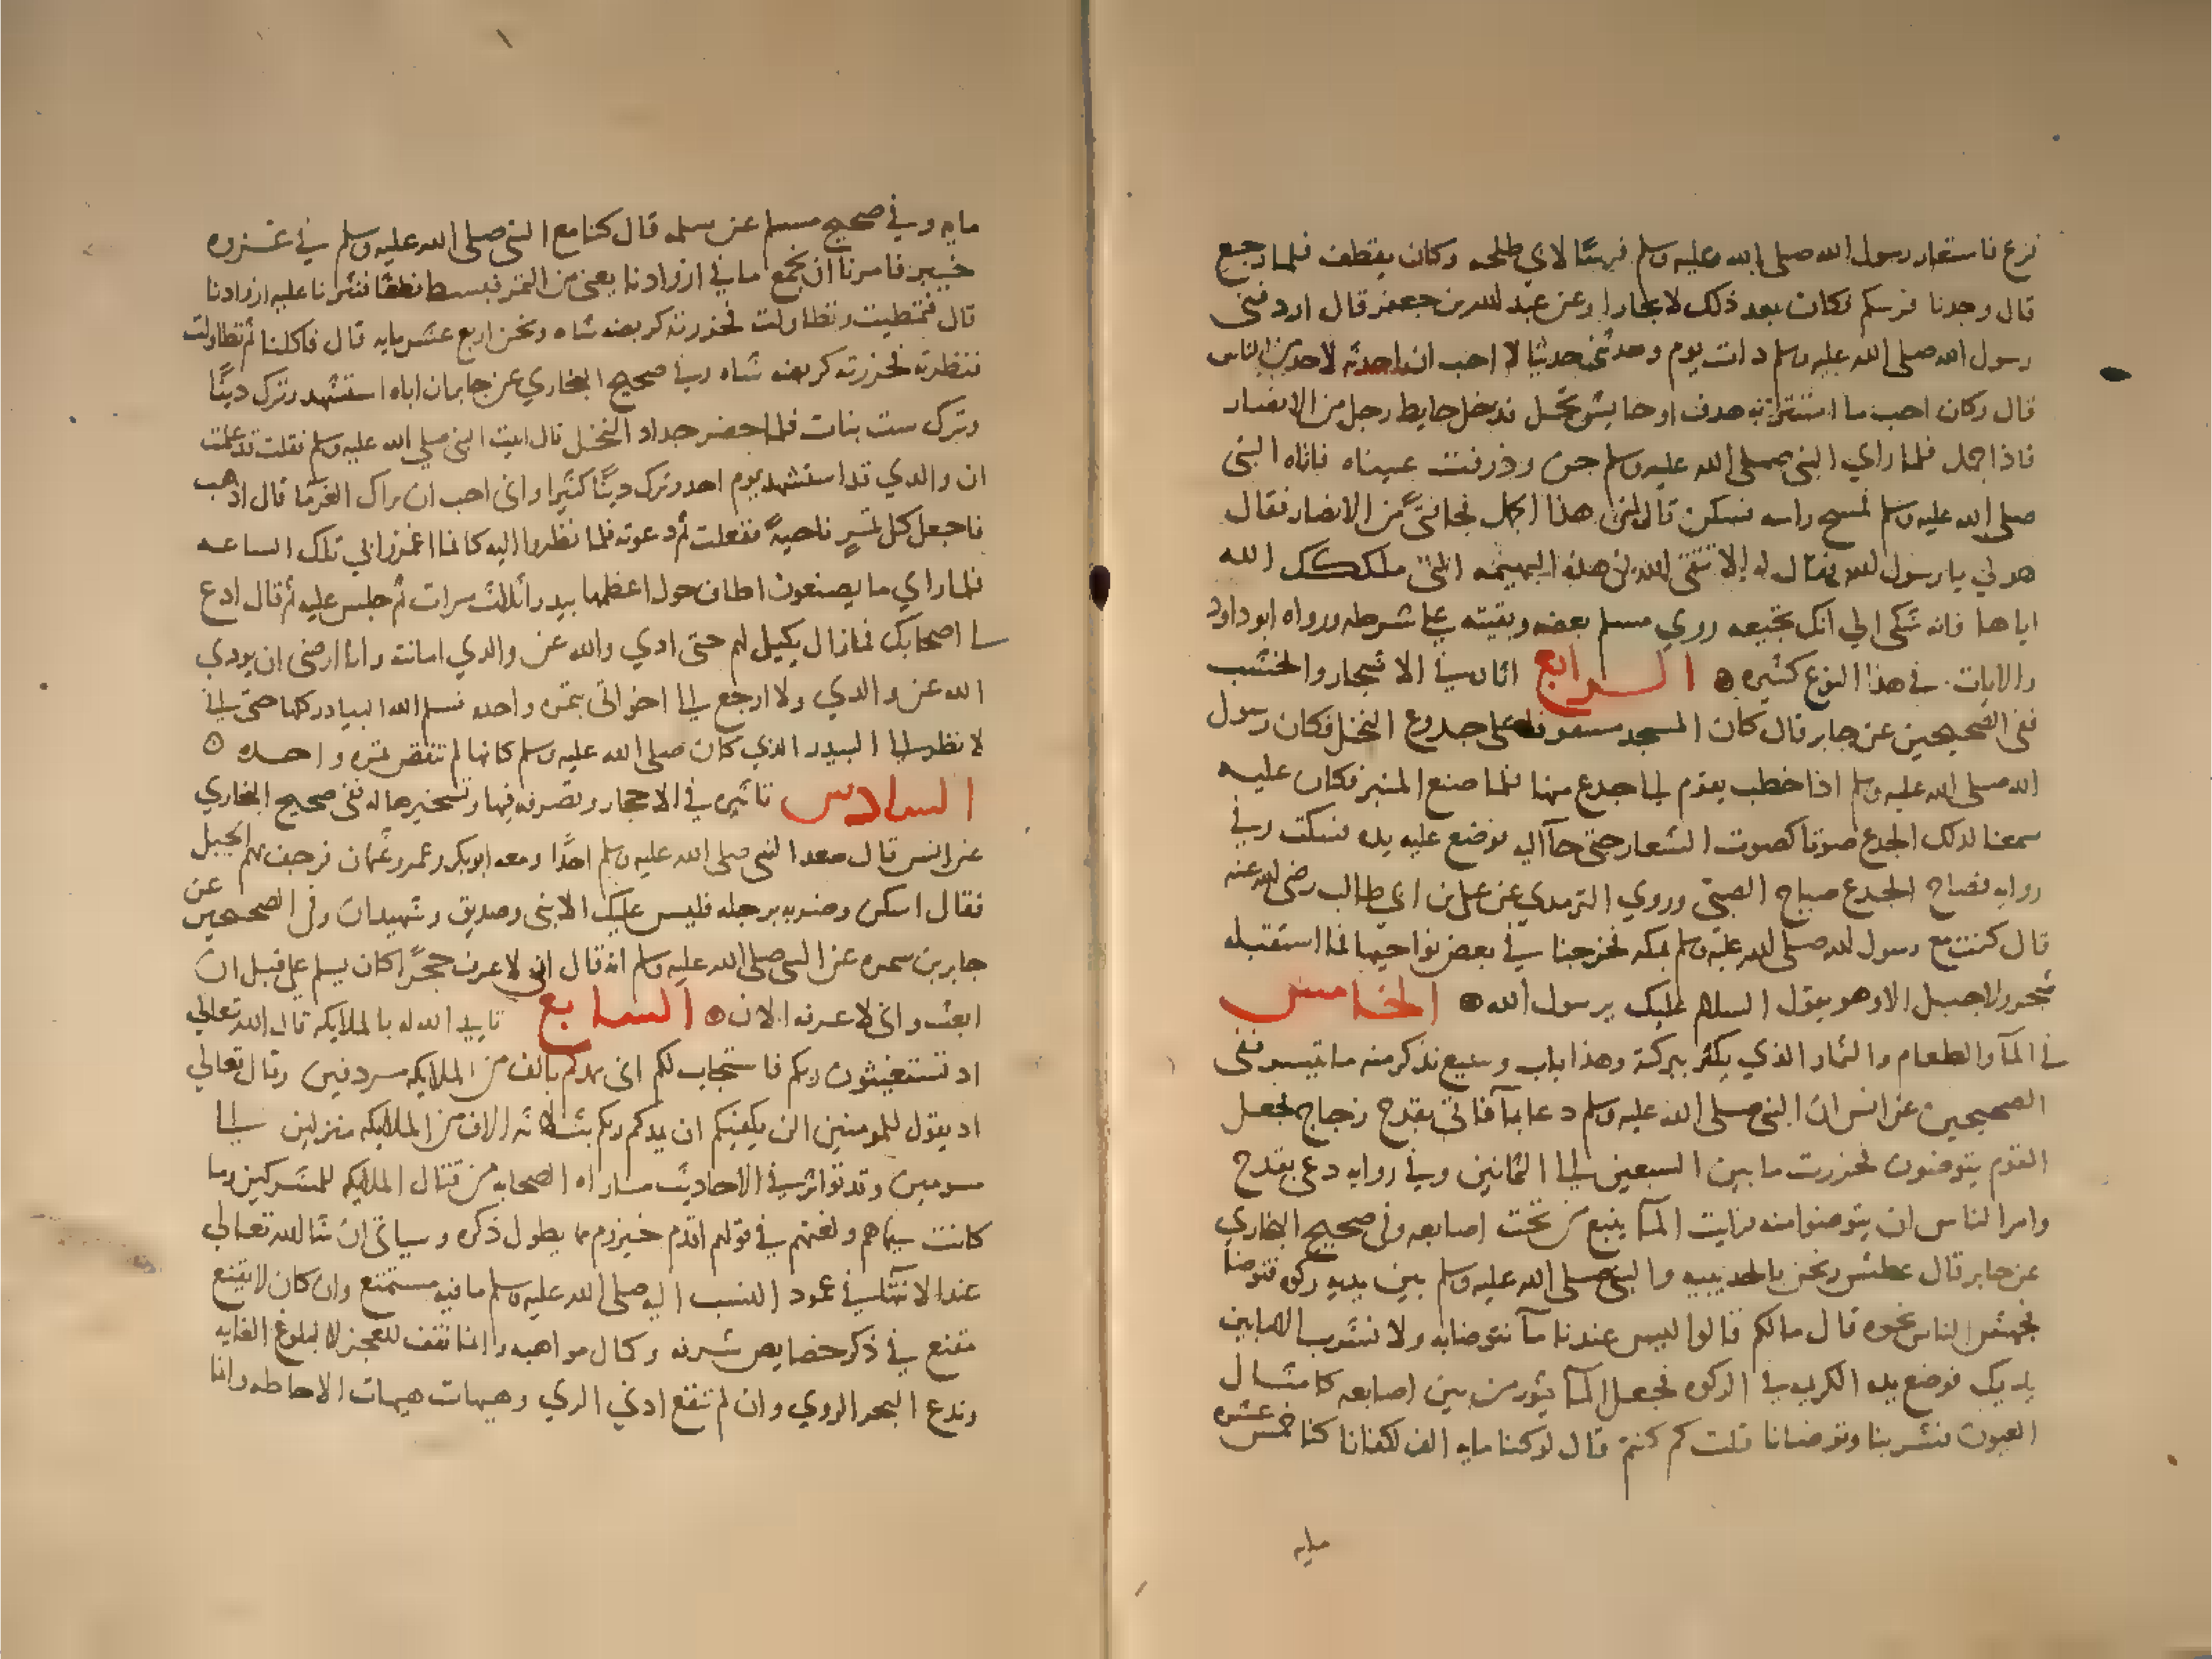 فزع فاستعار رسول الله صلى الله عليه وسلم فرسًا لابي طلحه وكان يقطف فلما رجع
قال وجدنا فرسكم فكان بعد ذلك لا يجارا وعن عبد الله بن جعفر قال اردفني
رسول الله صلى الله عليه وسلم دات يوم وحدثني حديثا لا احب ان احدثه لاحد من الناس
قال وكان احب ما استتر به هدف او حايش نخل فدخل حايط رجل من الانصار
فاذا جمل فلما راي النبي صلى الله عليه وسلم حن وذرفت عيناه فاتاه النبي
صلى الله عليه وسلم فمسح راسه فسكن قال لمن هذا الجمل فجا فتىً من الانصار فقال
هو لي يا رسول الله فقال له الا تتقي الله في هذه البهيمه التي ملكك الله
اياها فانه شكى الي انك تجيعه روي مسلم بعضه وبقيته على شرطه ورواه ابو داود
والايات في هذا النوع كثيره الرابع اثاره في الاشجار والخشب
ففي الصحيحين عن جابر قال كان المسجد مسقوفا على جدوع النخل فكان رسول
الله صلى الله عليه وسلم اذا خطب يقوم الى جدع منها فلما صنع المنبر فكان عليه
سمعنا لدلك الجدع صوتا كصوت العشار حتى جآ اليه فوضع عليه يده فسكت وفي
روايه فصاح الجدع صياح الصبي وروي الترمدي عن علي بن ابي طالب رضي الله عنه
قال كنت مع رسول الله صلى الله عليه وسلم بمكه فخرجنا في بعض نواحيها فما استقبله
شجر ولا جبل الا وهو يقول السلام عليك يرسول الله الخامس
في المآ والطعام والثمار الذي يكثر ببركته وهذا باب وسيع نذكر منه ما تيسر ففي
الصحيحين عن انس ان النبي صلى الله عليه وسلم دعا بمآ فاتي بقدح زجاج فجعل
القوم يتوضون فحزرت ما بين السبعين الى الثمانين وفي روايه دعى بقدح
وامر الناس ان يتوضوا منه فرايت المآ ينبع من تحت اصابعه وفي صحيح البخاري
عن جابر قال عطش ونحن بالحديبيه والنبي صلى الله عليه وسلم بين يديه ركوه فتوضا
فجهش الناس نحوه قال مالكم قالوا ليس عندنا مآ نتوضا به ولا نشرب الا ما بين
يديك فوضع يده الكريمه في الركوه فجعل المآ يثور من بين اصابعه كامثال
العيون فشربنا وتوضانا قلت كم كنتم قال لو كنا مايه الف لكفانا كنا خمس عشره
مايه
مايه وفي صحيح مسلم عن سلمه قال كنا مع النبي صلى الله عليه وسلم في غزوه
خيبر فامرنا ان نجمع ما في ازوادنا يعني من التمر فبسط نطعًا فنثرنا عليه ازوادنا
قال فتمطيت وتطاولت فحزرته كربضه شاه ونحن اربع عشر مايه قال فاكلنا ثم تطاولت
فنظرته فحزرته كربضه شاه وفي صحيح البخاري عن جابر ان اباه استشهد وترك دينًا
وترك ست بنات فلما حضر جداد النخل قال اتيت النبي صلى الله عليه وسلم فقلت قد علمت
ان والدي قد استشهد يوم احد وترك دينًا كثيرا واني احب ان يراك الغرما قال اذهب
فاجعل كل تمرٍ ناحيةً ففعلت ثم دعوته فلما نظروا اليه كانما اغروا بي تلك الساعه
فلما راي ما يصنعون اطاف حول اعظمها بيدرا ثلاث مرات ثم جلس عليه ثم قال ادع
لي اصحابك فما زال يكيل لهم حتى ادي والله عن والدي امانته وانا ارضى ان يودي
الله عن والدي ولا ارجع الى اخواتي بتمره واحده فسلم الله البيادر كلها حتى اني
لانظر الى البيدر الذي كان صلى الله عليه وسلم كانها لم تنقص تمره واحده
السادس تاثيره في الاحجار وتصرفه فيها وتسخيرها له ففي صحيح البخاري
عن انس قال صعد النبي صلى الله عليه وسلم احدًا ومعه ابو بكر وعمر وعثمان فرجف بهم الجبل
فقال اسكن وضربه برجله فليس عليك الا نبي وصديق وشهيدان وفي الصحيحين عن
جابر بن سمره عن النبي صلى الله عليه وسلم انه قال اني لاعرف حجرًا كان يسلم علي قبل ان
ابعث واني لاعرفه الان السابع تاييد الله له بالملايكه قال الله تعالي
اد تستغيثون ربكم فاستجاب لكم اني ممدكم بالف من الملايكه مردفين وقال تعالي
اد يقول للمومنين الن يكفيكم ان يمدكم ربكم بثلاثه الاف من الملايكه منزلين الى
مسومين وقد تواترت في الاحاديث ما راه الصحابه من قتال الملايكه للمشركين وما
كانت سيماهم ولغتهم في قولهم اقدم حيزوم مما يطول ذكره وسياتي ان شا الله تعالي
عند الانتهآ في عمود النسب اليه صلى الله عليه وسلم ما فيه مستمتع وان كان لا يقنع
مقنع في ذكر خصايص شرفه وكمال مواهبه وانما نقف للعجز لا لبلوغ الغايه
وندع البحر الروي وان لم نقع ادني الري وهيهات هيهات الاحاطه وانا